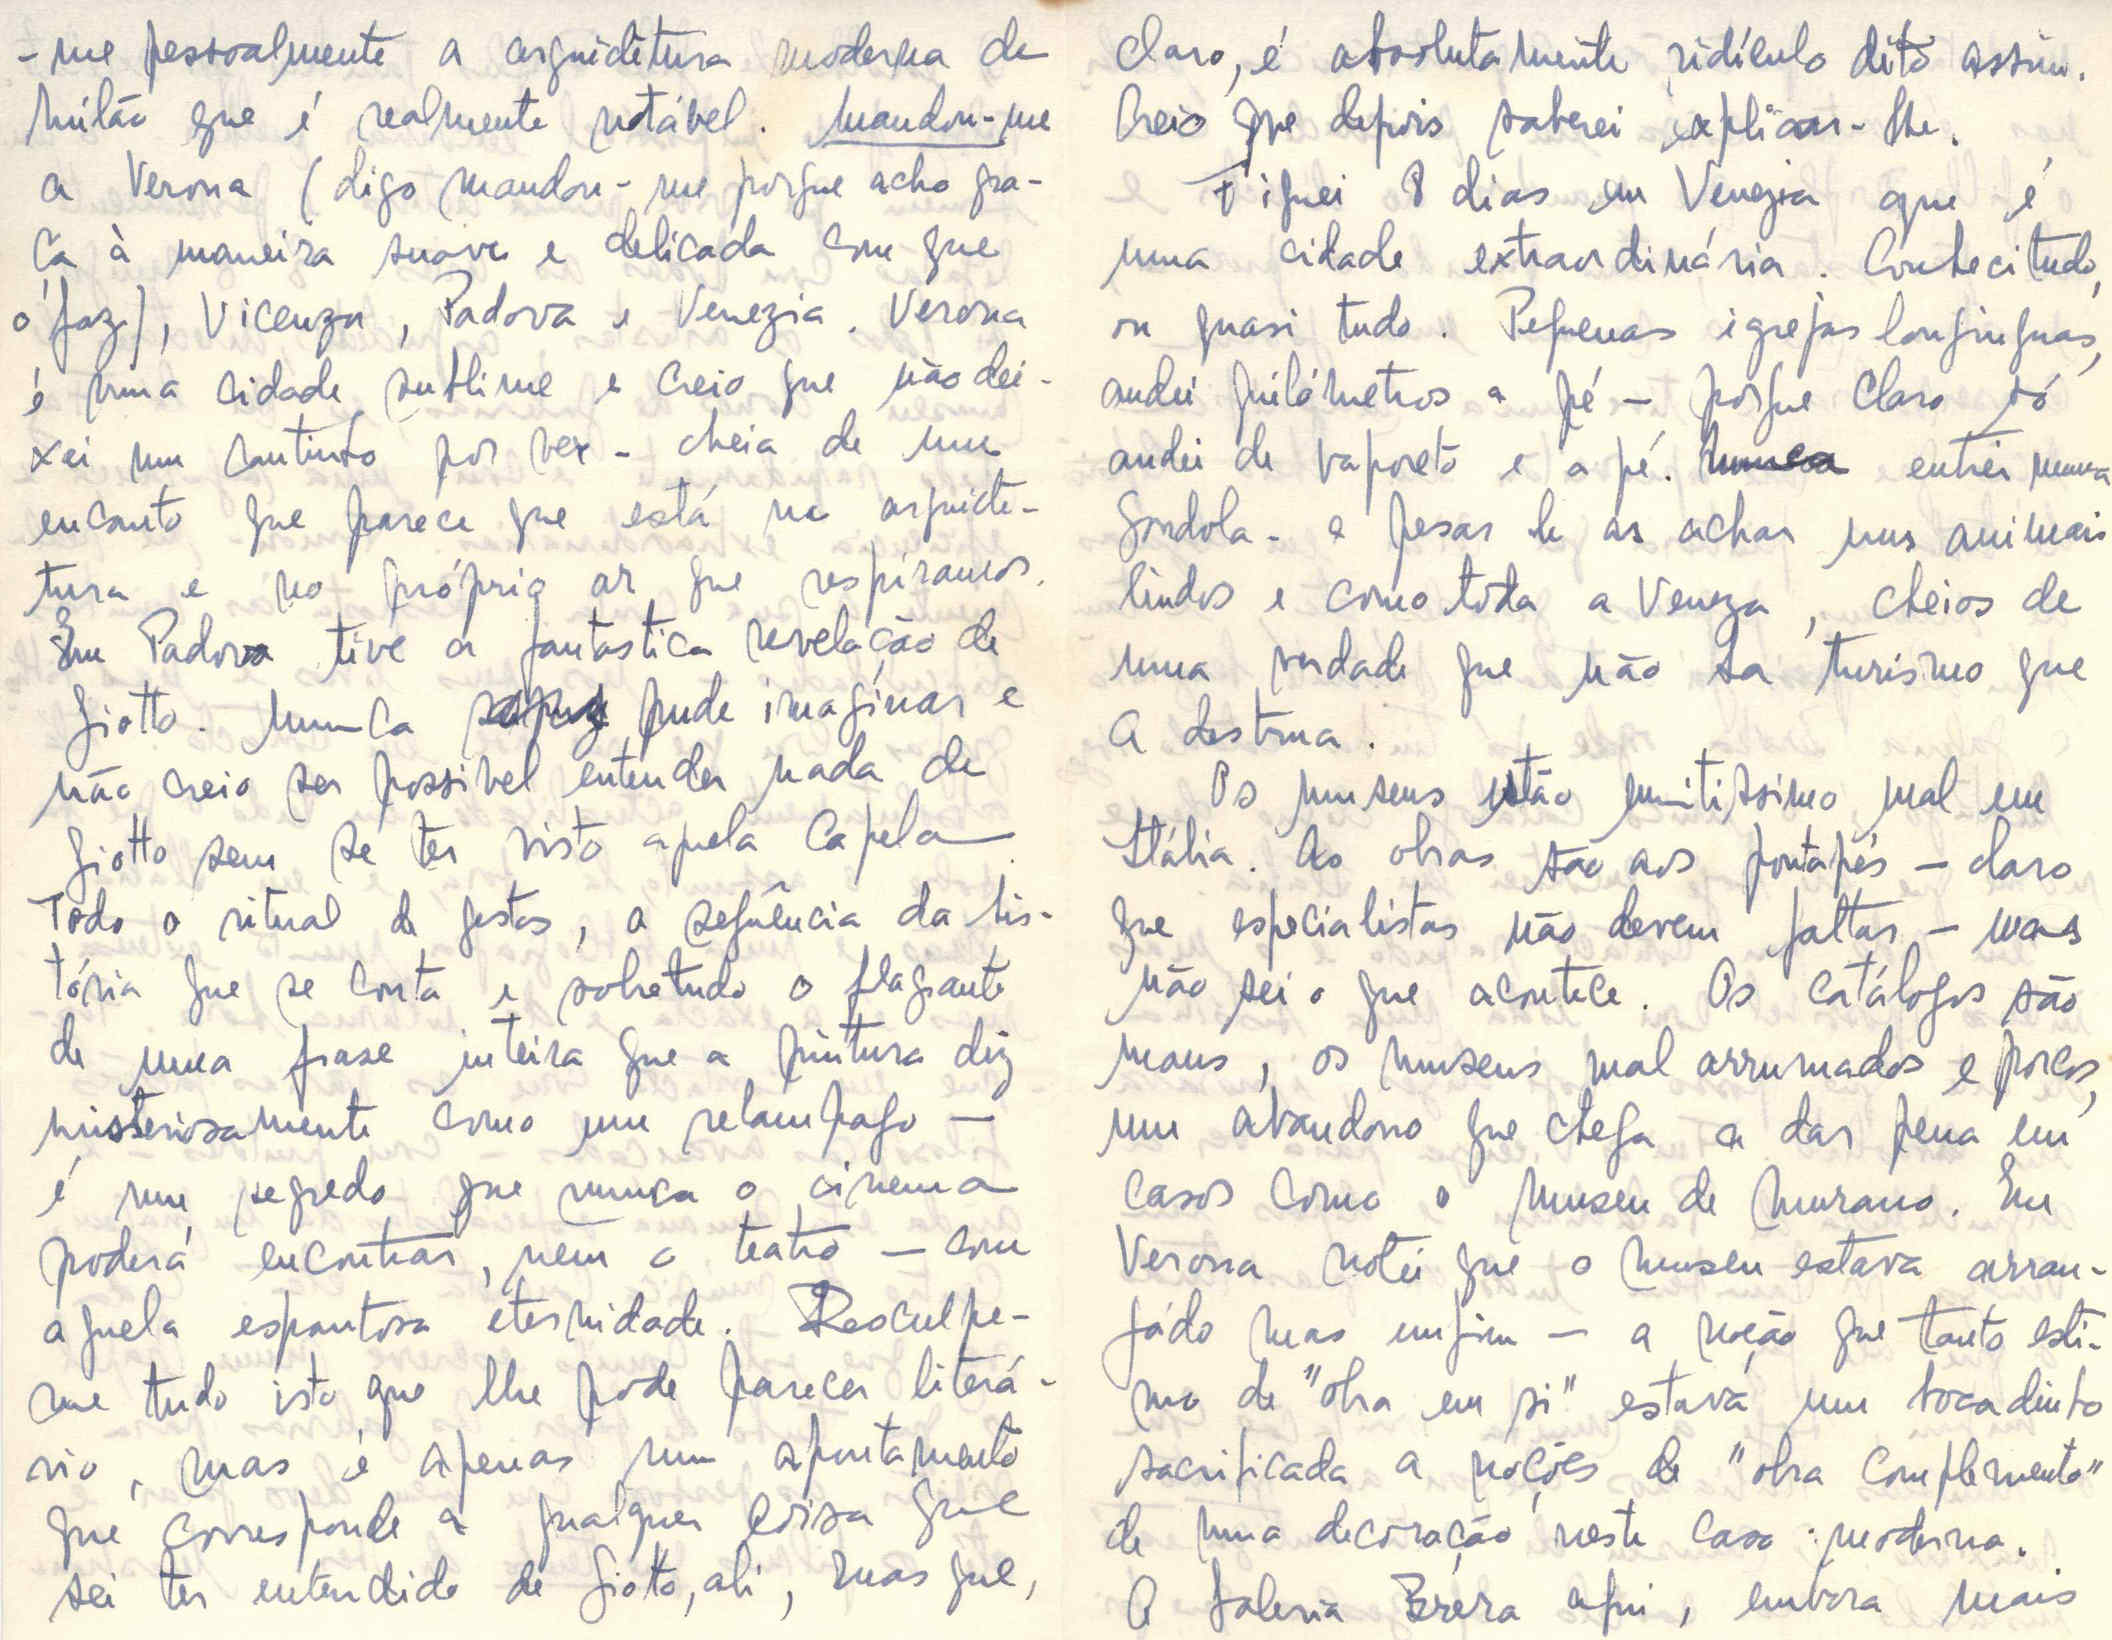 -me pessoalmente a arquitetura moderna de
Milão que é realmente notável. Mandou-me
a Verona (digo mandou-me porque acho gra-
ça à maneira suave e delicada com que
o faz), Vicenza, Padova e Venezia. Verona
é uma cidade sublime e creio que não dei-
xei um cantinho por ver - cheia de um
encanto que parece que está na arquite-
tura e no próprio ar que respiramos.
Em Padova tive a fantastica revelação de
Giotto. Nunca pude imaginar e
não creio ser possivel entender nada de
Giotto sem se ter visto aquela Capela.
Todo o ritual de gestos, a seqûencia da his-
tória que se conta e sobretudo o flagrante
de uma frase inteira que a pintura diz
misteriosamente como um relampago —
é um segredo que nunca o cinema
poderá encontrar, nem o teatro — com
aquela espantosa eternidade. Desculpe-
me tudo isto que lhe pode parecer literá-
rio, mas é apenas um apontamento
que corresponde a qualquer coisa que
sei ter entendido de Giotto, ali, mas que,
claro, é absolutamente ridículo dito assim.
Creio que depois saberei explicar-lhe.
Fiquei 8 dias em Venezia que é
uma cidade extraordinária. Conheci tudo,
ou quasi tudo. Pequenas igrejas longinquas,
andei quilómetros a pé — porque claro só
andei de vaporeto e a pé. Nunca entrei numa
gondola - a pesar de as achar uns animais
lindos e como toda a Veneza, cheios de
uma verdade que não há turismo que
a destrua.
Os museus estão muitissimo mal em
Itália. As obras são aos pontapés — claro
que especialistas não devem faltar — mas
não sei o que acontece. Os catálogos são
maus, os museus mal arrumados e porcos,
um abandono que chega a dar pena em
casos como o museu de Murano. Em
Verona notei que o museu estava arran-
jádo mas enfim — a noção que tanto esti-
mo de "obra em si" estava um bocadinho
sacrificada a noções de "obra complemento"
de uma decoração neste caso: moderna.
A Galeria Brera aqui, embora mais